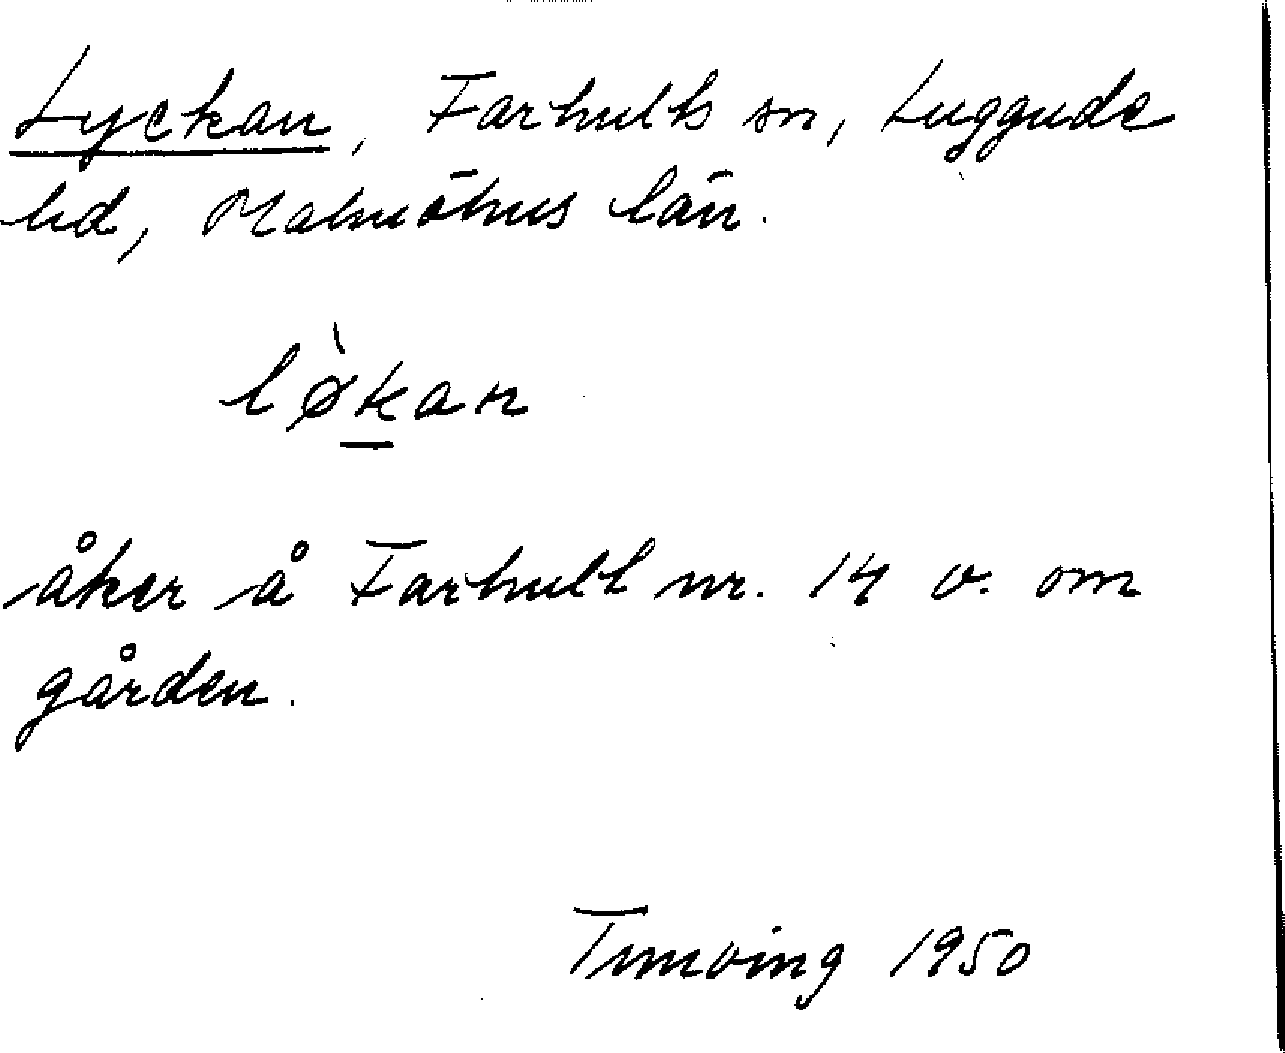 Lyckan, Farhults sn, Luggude
hd, Malmöhus län.
lø̀k̲an
åker å Farhult nr. 14 v. om
gården.
1950